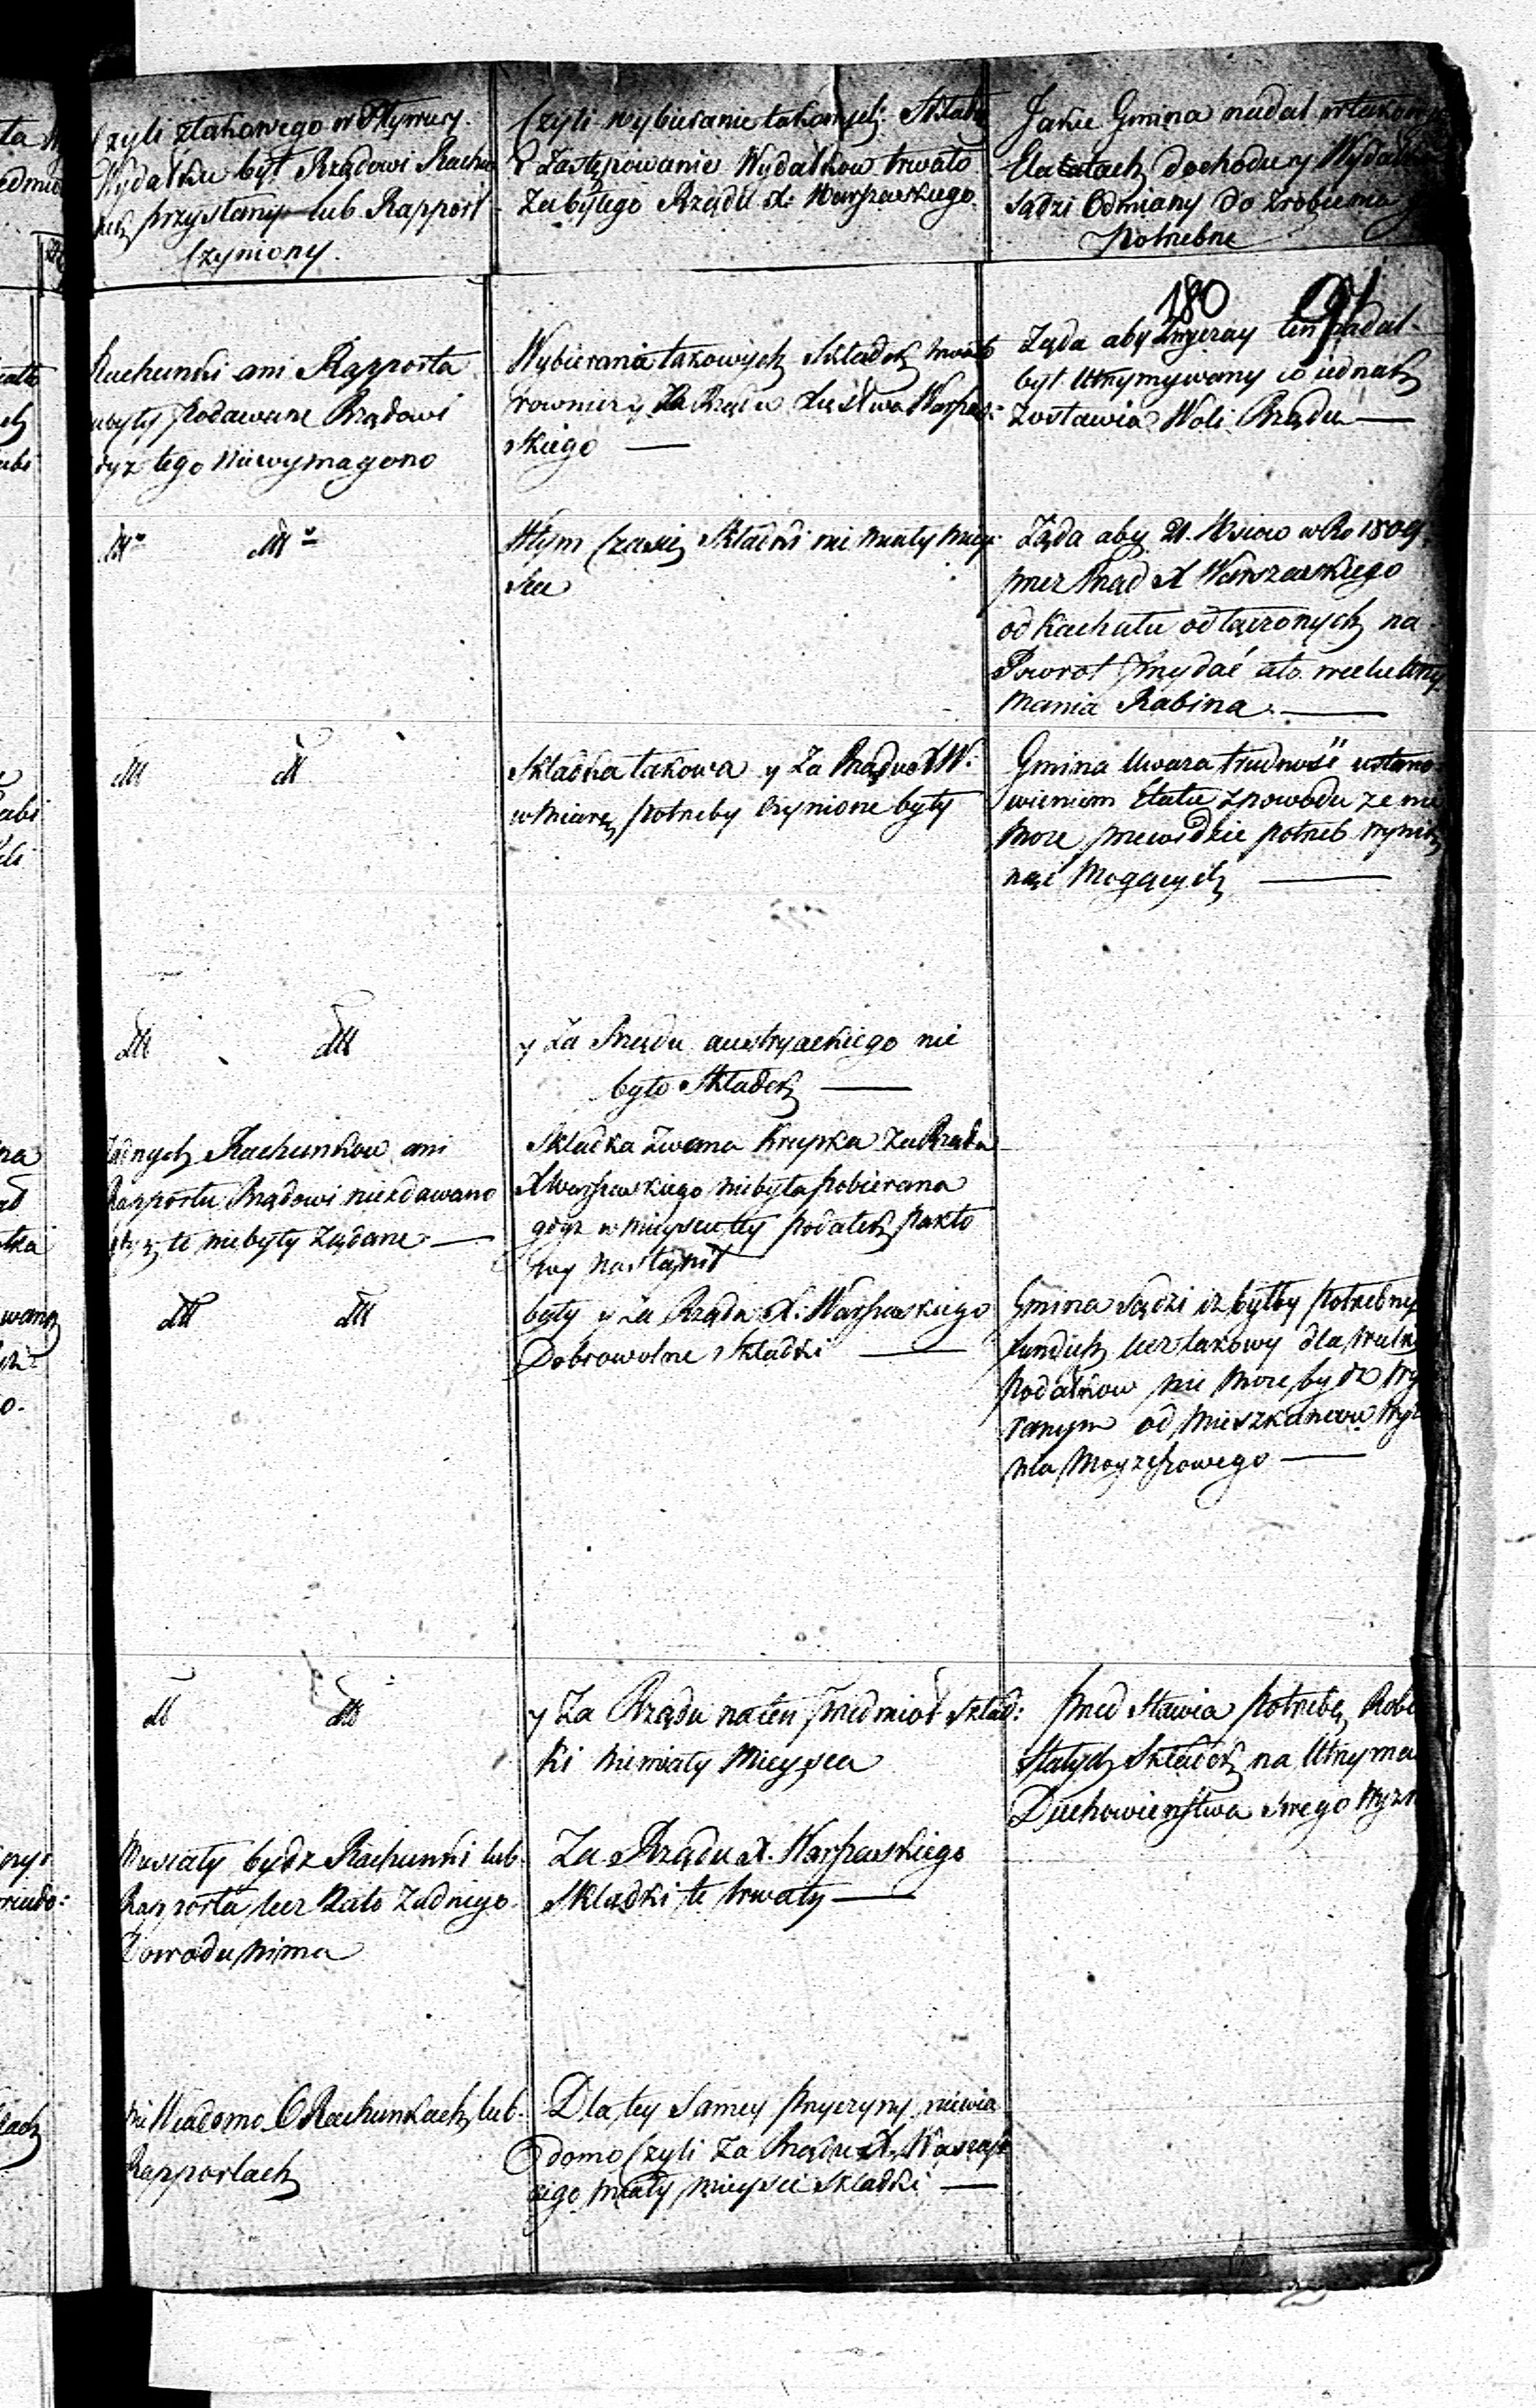 Czyli z takowego w Płymury
Wydatku był Rządowi Rachu
nek przystany lub Rapport
Czyniony.
Czyli wybieranie takowych Skład
y Zastępowanie Wydatkow trwało
Zabyłego Rządu X: Warszawskiego
Jakie Gmina nadal w takow
Etatatach dochodu y Wydatk
sądzi Odmiany do zrobienia
Potrzebne
180 91
Rachunki ani Rapporta
niebyły podawane Rządowi
gdyz tego niewymagano
Wybierania takowych Składek trwało
rownierz y Za Rządu Xięstwa Warszaw:
skiego —
Ząda aby Inzeray ten nadal
był Utrzymywany co iednak
Zostawia Woli Rządu —
dtto dtto
W tym Czasie Składki nie miały miey:
sca
Ząda aby 21. Wsiow w Ro 1809.
przez Rząd X Warszawskiego
od Kachału odłączonych na
Powrot przydać ato w celu Utrzy
mania Rabina. —
dtt dtt
Składka takowa y Za Rządu X W:
w miarę potrzeby czynione były
Gmina Uwaza trudność w ustano
wieniem Etatu z powodu ze nie
moze przewidzie potrzeb wynik
nąć Mogących —
dtt dtt
y Za Rządu austryackiego nie
było Składek —
Zadnych Rachunkow ani
Rapportu Rządowi niezdawano
gdyz te niebyły Ządane —
Składka Zwana Krupka Za Rządu
X Warszawskiego niebyła pobierana
gdyz w mieyscu tey podatek pakto
wy nastąpił
dtt dtt
były y Za Rządu X: Warszawskiego
Dobrowolne Składki —
Gmina sądzi iz byłby potrzebny
fundusz lecz takowy dla wielu
podatkow nie moze bydz wy
ranym od mieszkancow wyz
nia Moyzeszowego —
dtt dtt
y Za Rządu na ten przedmiot Skład:
ki niemiały Mieysca
Przed Stawia potrzebę Robi
Stałych Składek na Utrzyma
Duchowieństwa swego Wyzn
Musiały bydz Rachunki lub
Rapporta lecz Nato Zadnego
Dowodu nima
Za Rządu X. Warszawskiego
Składki te trwały —
nie Wiadomo O Rachunkach lub
Rapportach
Dla tey Samey Przyczyny niewia
domo Czyli Za Rządu X. Warszaws
kiego miały mieysce Składki —